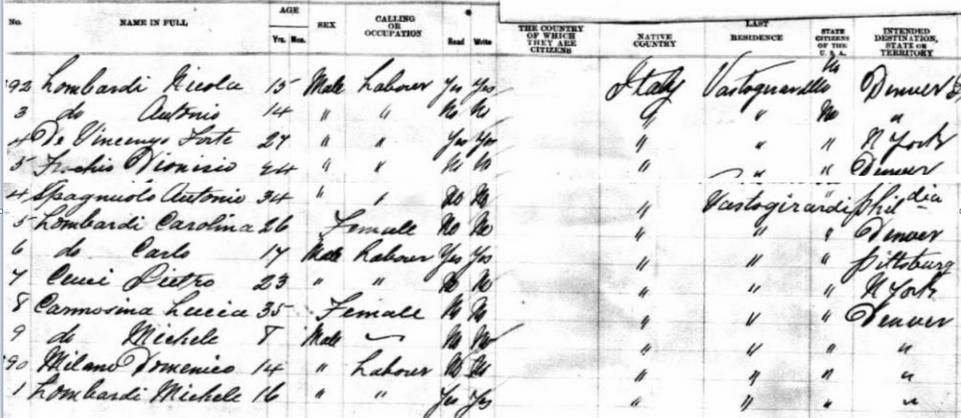 No. NAME IN FULL AGE Yrs. Mos. SEX CALLING OR OCCUPATION Read Write THE COUNTRY OF WHICH THEY ARE CITIZENS NATIVE COUNTRY LAST RESIDENCE STATE CITIZENS OF THE U. S. A. INTENDED DESTINATION, STATE OR TERRITORY
92 Lombardi Nicola 15 Male Labourer Yes Yes Italy No Denver
3 do Antonio 14 " " No No " " No "
4 De Vincenzo Forte 27 " " Yes Yes " " " N York
5 Dionisio 44 " " No No " " " Denver
4 Spagnuolo Antonio 34 " " No No " Vastogirardi " Phildia
5 Lombardi Carolina 26 Female No No " " " Denver
6 do Carlo 17 Male Labourer Yes Yes " " " Pittsburg
7 Cenci Pietro 23 " " No No " " " N York
8 Carmosina Lucia 35 Female No No " " " Denver
9 do Michele 8 Male No No " " " "
90 Milano Domenico 14 " Labourer No No " " " "
1 Lombardi Michele 16 " " Yes Yes " " " "